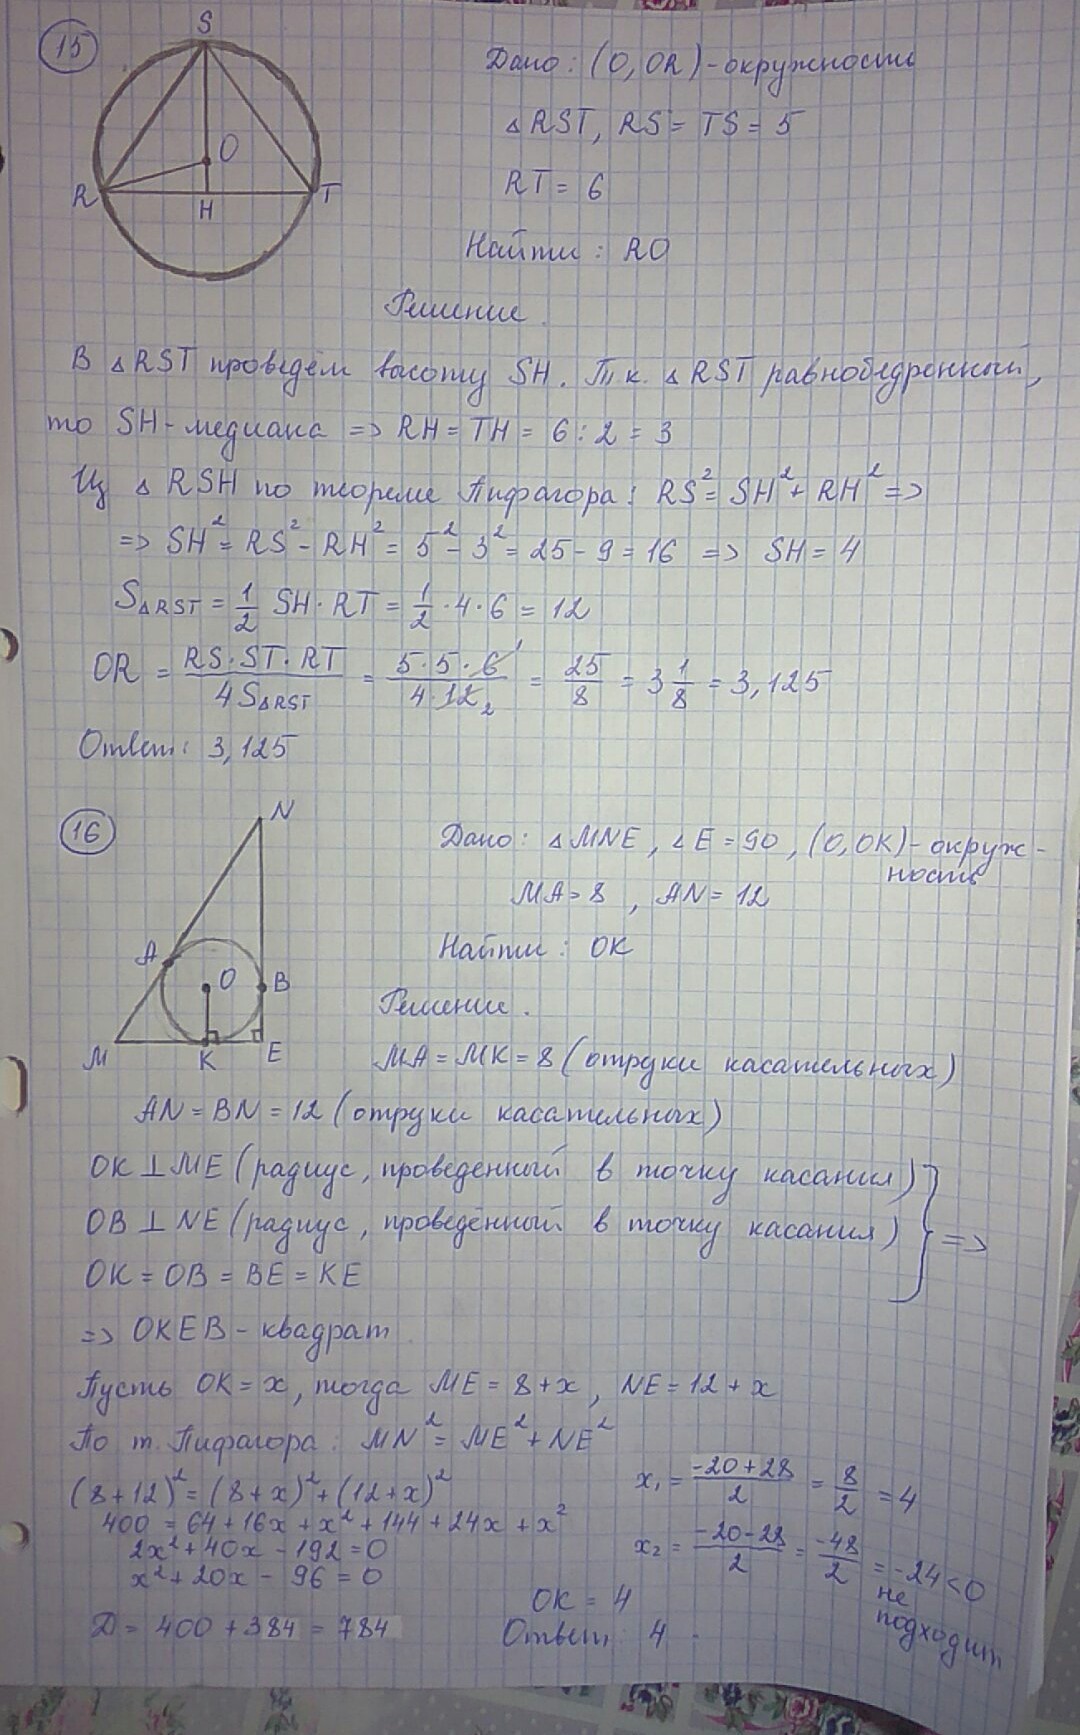 15
S
O
R
H
T
Дано: (O, OR) - окружность
△RST, RS = TS = 5
RT = 6
Найти: RO
Решение.
В △RST проведём высоту SH. Т.к. △RST равнобедренный,
то SH - медиана => RH = TH = 6 : 2 = 3
Из △RSH по теореме Пифагора: RS² = SH² + RH² =>
=> SH² = RS² - RH² = 5² - 3² = 25 - 9 = 16 => SH = 4
S△RST = 1/2 SH · RT = 1/2 · 4 · 6 = 12
OR = RS·ST·RT / 4S△RST = 5·5·6 1 / 4·12 2 = 25/8 = 3 1/8 = 3,125
Ответ: 3,125
16
N
A
O
B
M
K
E
Дано: △MNE, ∠E = 90, (O, OK) - окруж-
ность
MA = 8, AN = 12
Найти: OK
Решение.
MA = MK = 8 (отруки касательных)
AN = BN = 12 (отруки касательных)
OK ⊥ ME (радиус, проведенный в точку касания)
OB ⊥ NE (радиус, проведённый в точку касания) =>
OK = OB = BE = KE
=> OKEB - квадрат
Пусть OK = x, тогда ME = 8 + x, NE = 12 + x
По т. Пифагора: MN² = ME² + NE²
(8+12)² = (8+x)² + (12+x)²
400 = 64 + 16x + x² + 144 + 24x + x²
2x² + 40x - 192 = 0
x² + 20x - 96 = 0
D = 400 + 384 = 784
x₁ = -20+28 / 2 = 8/2 = 4
x₂ = -20-28 / 2 = -48/2 = -24 < 0
не
подходит
OK = 4
Ответ: 4